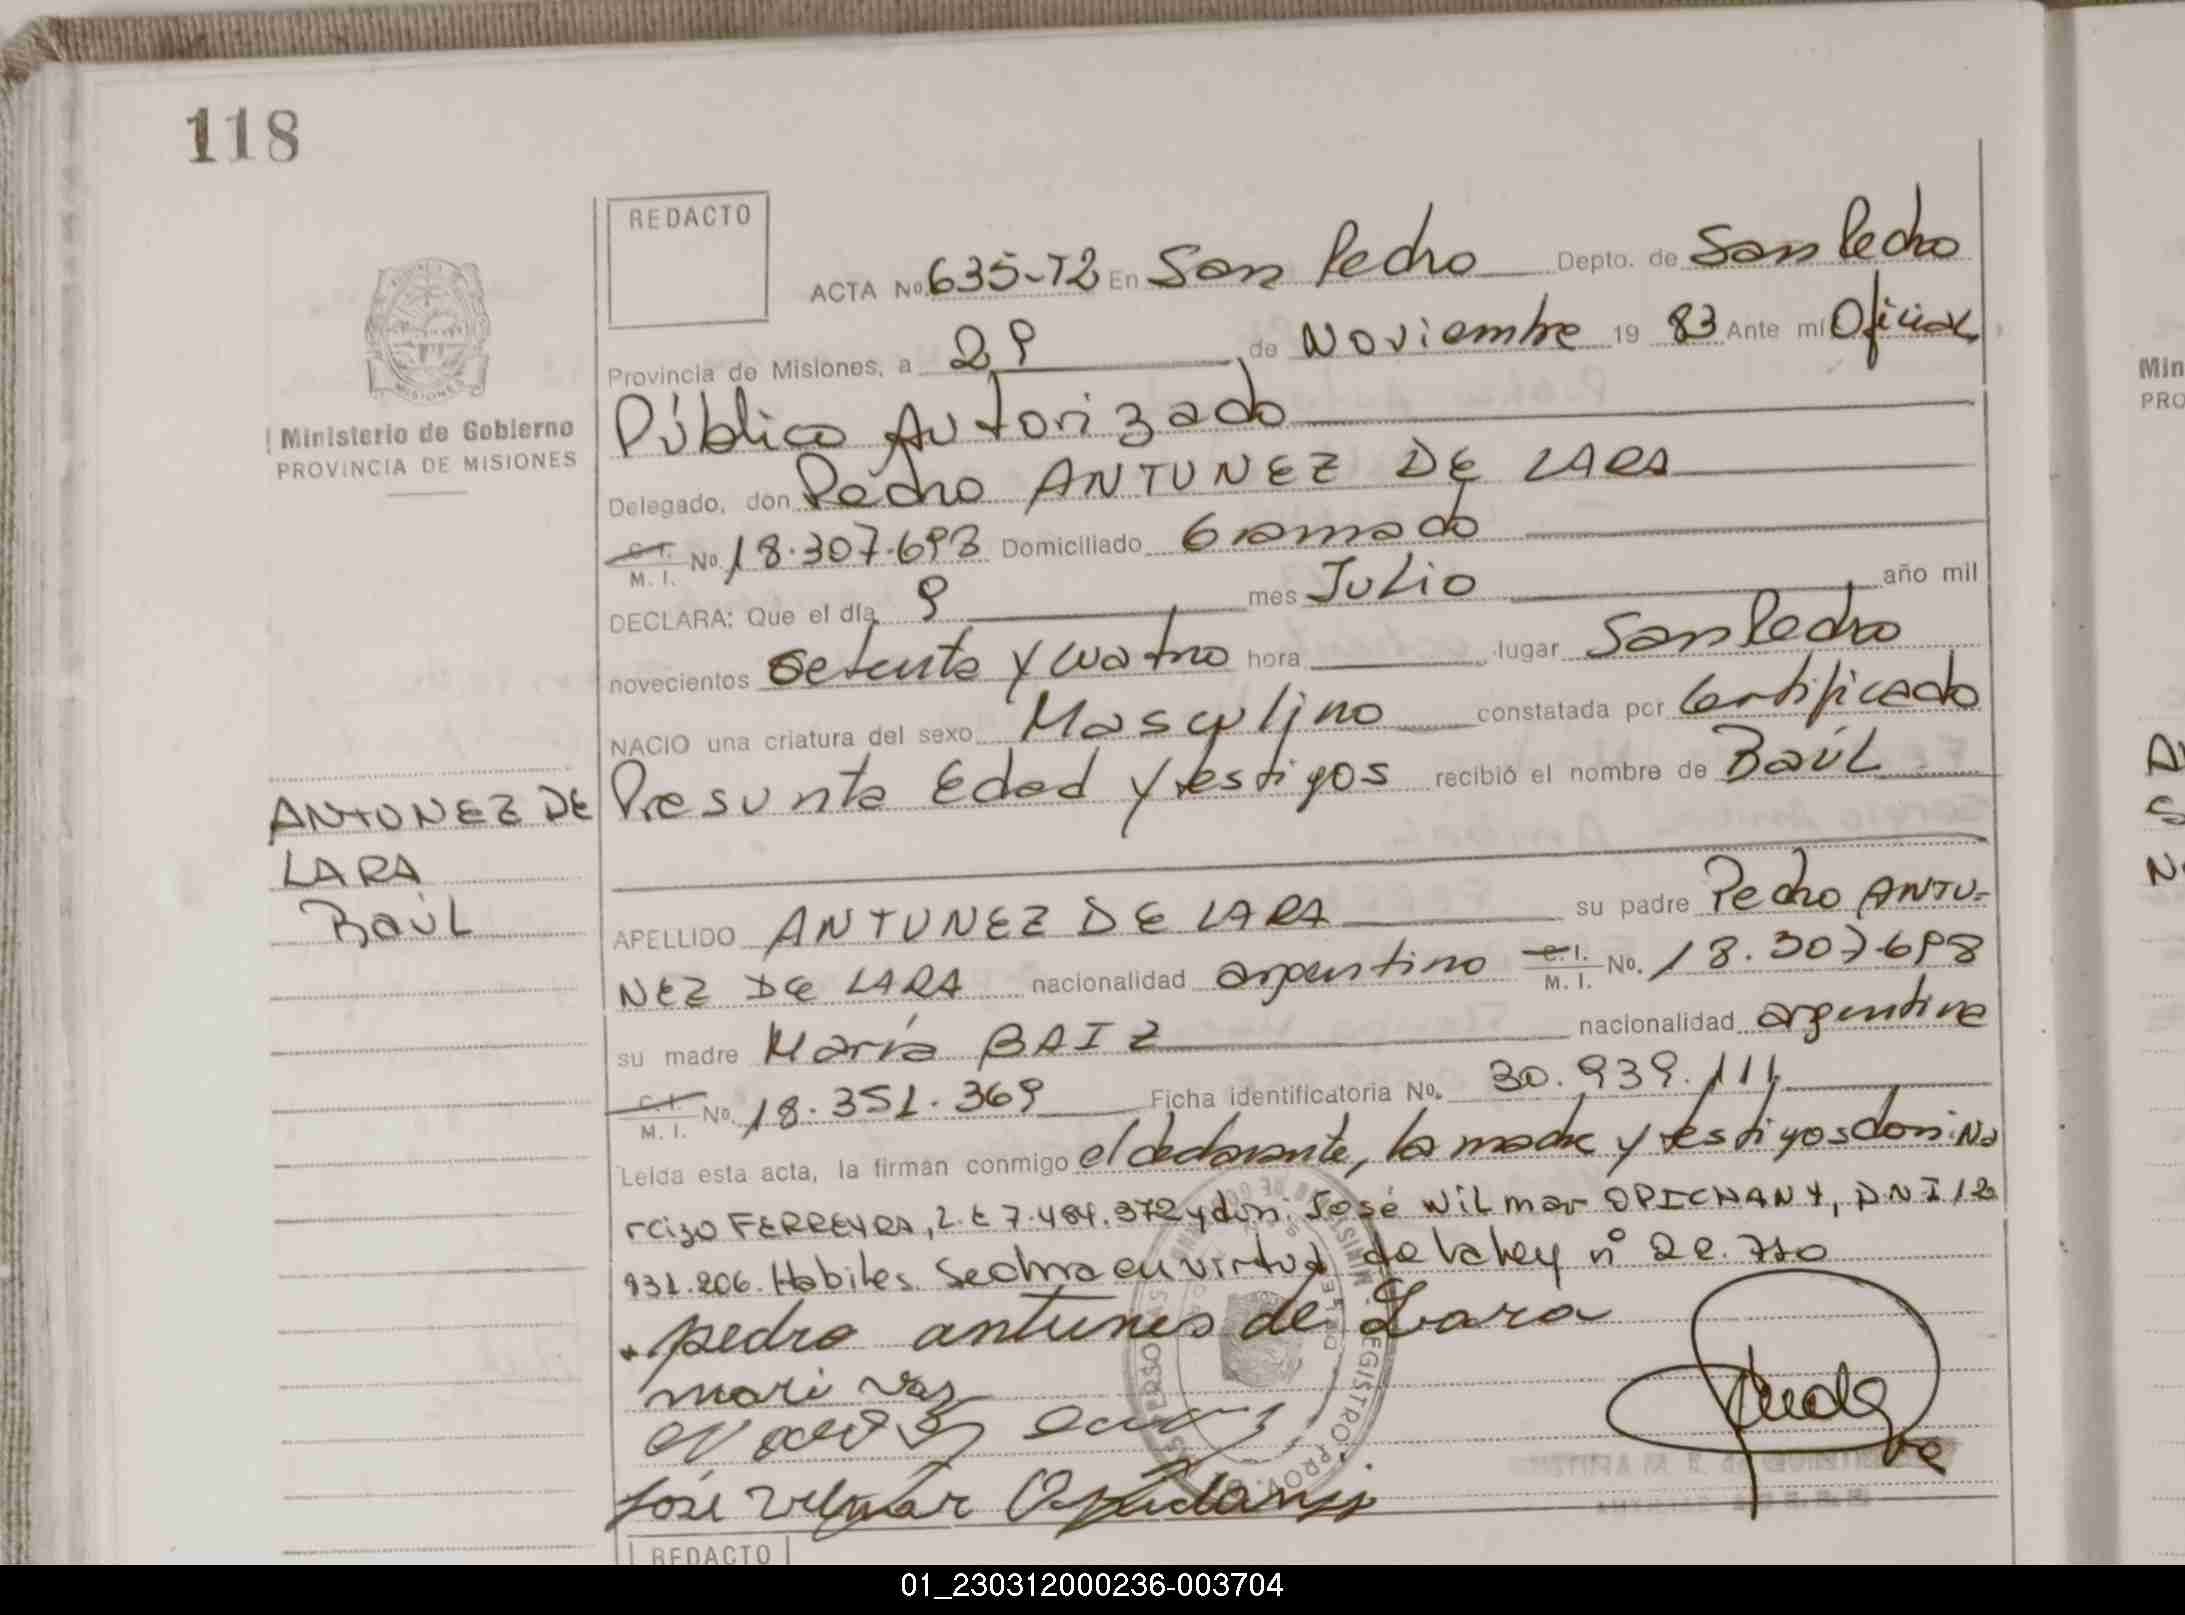 118
REDACTO
ACTA No. 635-T2 En San Pedro Depto. de San Pedro
Provincia de Misiones, a 29 de Noviembre 19 83 Ante mí Oficial
Ministerio de Gobierno
PROVINCIA DE MISIONES
Público Autorizado
Delegado, don Pedro ANTUNEZ DE LARA
C.I. M.I. No. 18.307.698 Domiciliado Gramado
DECLARA: Que el día 9 mes Julio año mil
novecientos setenta y cuatro hora lugar San Pedro
NACIO una criatura del sexo Masculino constatada por Certificado
Presunta Edad y testigos recibió el nombre de Raúl
ANTUNEZ DE
LARA
Raúl
APELLIDO ANTUNEZ DE LARA su padre Pedro ANTU-
NEZ DE LARA nacionalidad argentino C.I. M.I. No. 18.307.698
su madre María BAIZ nacionalidad argentina
C.I. M.I. No. 18.351.369 Ficha identificatoria No. 30.939.111
Leída esta acta, la firman conmigo el declarante, la madre y testigos don: Na
rcizo FERREYRA, L.E 7.484.372 y don: José Wilmar OPICHANY, DNI 12
931.206. Habiles. Se obra en virtud de la ley nº 22.770
pedro antunes de Lara
mari vaz
José Vilmar
REDACTO
Min
PRO
01_230312000236-003704